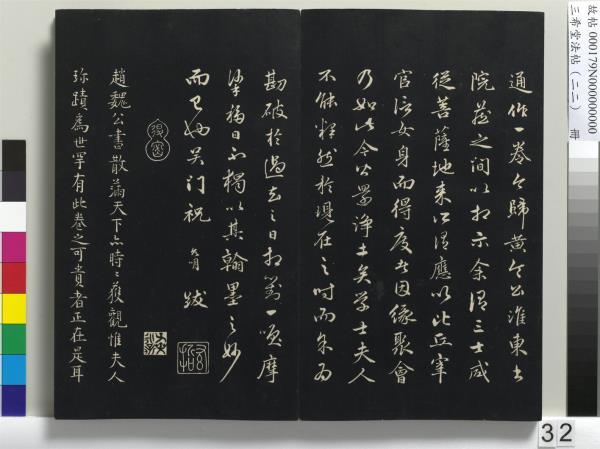 故帖 000179N000000000
三希堂法帖(二二) 冊
通作一卷今歸黃令公淮東
院藏之間以相示余謂三士咸
從菩薩地來所謂應以比丘宰
官信女身而得度者因緣聚會
乃如此今公署淨土矣學士夫人
不能釋然於現在之時而余為
勘破於過去之日相對一嘆摩
挲移日不獨以其翰墨之妙
而已也吳門祝 跋
趙魏公書散滿天下亦時時獲觀惟夫人
珎蹟為世罕有此卷之可貴者正在是耳
32